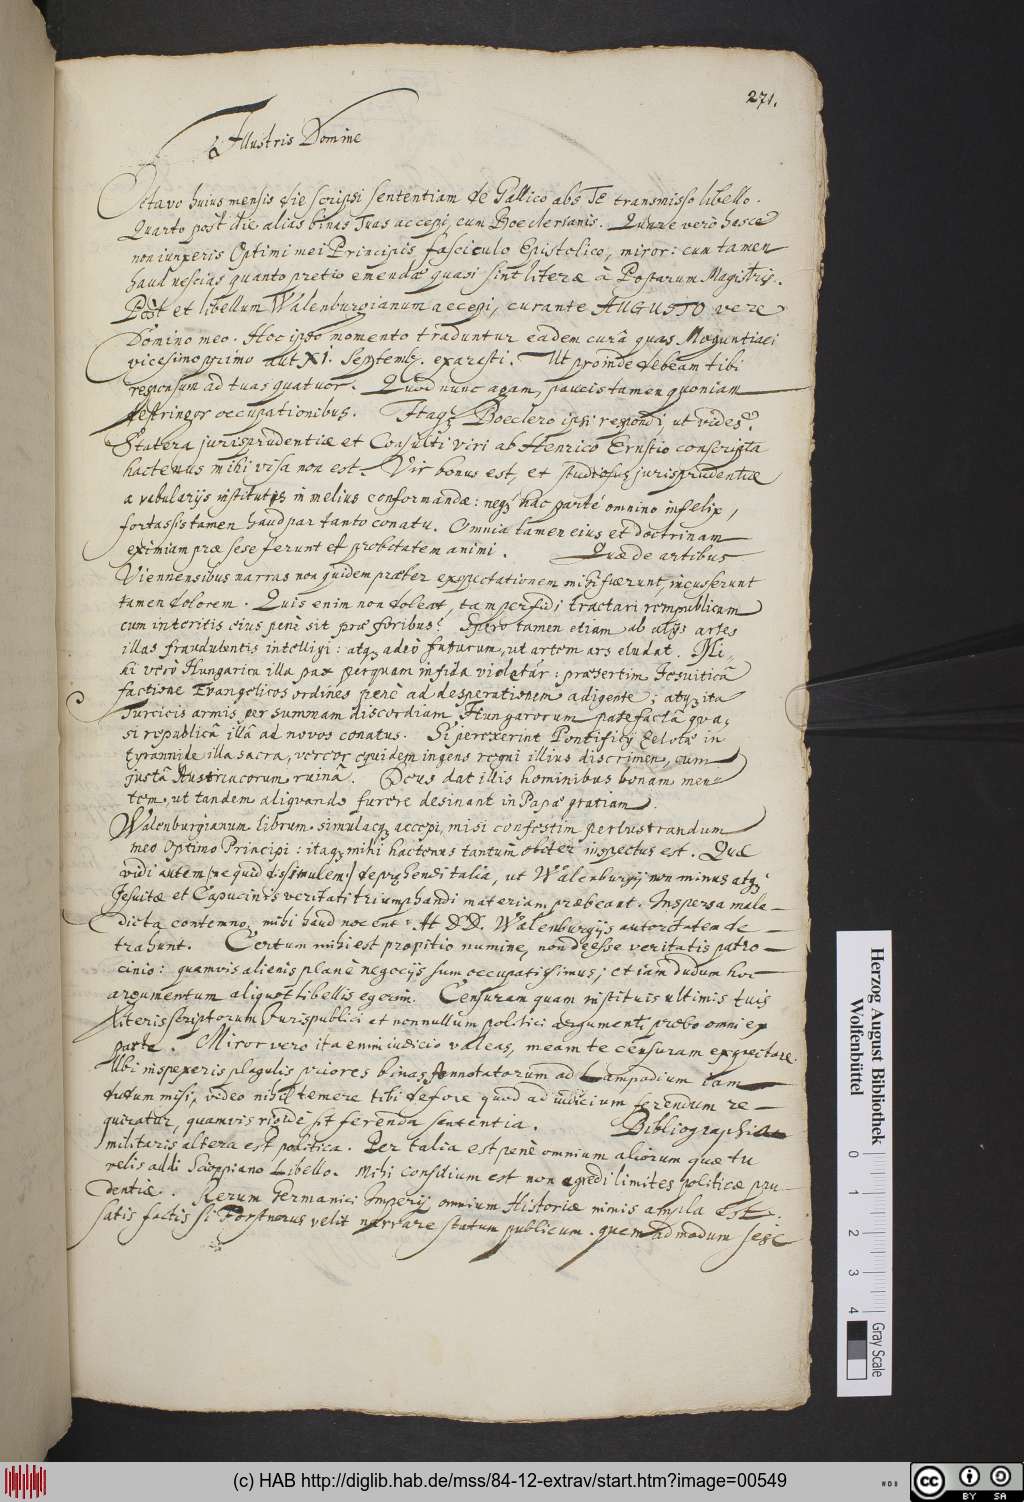 271.
Illustris Domine
Octavo huius mensis die scripsi sententiam de Gallico abs Te transmisso libello.
Quarto post die alias binas Tuas accepi, cum Boeclerianis. Quare verò hasce
non iunxeris Optimi mei Principis fasciculo Epistolico, miror: cum tamen
haud nescias quanto pretio emendae quasi sint literae à Postarum Magistris.
Pòst et libellum Walenburgianum accepi, curante AUGUSTO vere
Domino meo. Hoc ipso momento traduntur eadem curâ quas Moguntiaci
vicesimo primo aut XI. Septemb. exarasti. Ut proinde debeam tibi
responsum ad tuas quatuor. Quod nunc agam, paucis tamen quoniam
destringor occupationibus. Itaq; Boeclero ipsi respondi, ut vides.
Statera jurisprudentiae et Consulti viri ab Henrico Ernstio conscripta
hactenus mihi visa non est. Vir bonus est, et studiosus jurisprudentiae
a rabularijs institutis in melius conformandae: neq; hac parte omnino infelix,
fortassis tamen haud par tanto conatu. Omnia tamen eius et doctrinam
eximiam prae sese ferunt et probitatem animi. Quae de artibus
Viennensibus narras non quidem praeter exspectationem mihi fuerunt, incusserunt
tamen dolorem. Quis enim non doleat, tam perfidè tractari rempublicam
cum interitus eius penè sit prae foribus? Spero tamen etiam ab alijs artes
illas fraudulentas intelligi: atq; adeò futurum, ut artem ars eludat. Mi-
hi verò Hungarica illa pax perquam infida videtur: praesertim Jesuiticâ
factione Evangelicos ordines penè ad desperationem adigente; atq; ita
Turcicis armis per summam discordiam Hungarorum patefactâ qua-
si republicâ illâ ad novos conatus. Si perrexerint Pontificij Zelotae in
tyrannide illa sacra, vereor equidem ingens regni illius discrimen, cum
justâ Austriacorum ruinâ. Deus dat illis hominibus bonam men-
tem, ut tandem aliquando furere desinant in Papae gratiam.
Walenburgianum librum simulacq; accepi, misi confestim perlustrandum
meo Optimo Principi: itaq; mihi hactenus tantùm obiter inspectus est. Quae
vidi autem (ne quid dissimulem) deprehendi talia, ut Walenburgij non minus atq;
Jesuitae et Capucinis veritati triumphandi materiam praebeant. Inspersa male-
dicta contemno, mihi haud nocent. At DD. Walenburgijs autoritatem de-
trahunt. Certum mihi est propitio numine, non deesse veritatis patro-
cinio: quamvis alienis planè negocijs sum occupatissimus; et iam dudum hoc
argumentum aliquot libellis egerim. Censuram quam instituis ultimis tuis
literis scriptorum Juris publici et nonnullum politici argumenti, probo omni ex
parte. Miror vero ita enim iudicio valeas, meam te censuram exspectare.
Ubi inspexeris plagulis priores binas annotatorum ad Lampadium iam
dudum misi, video nihil temere tibi defore quod ad iudicium ferendum re-
quiratur, quamvis sit ferenda sententia. Bibliographia
militaris altera est politica. Per talia est penè omnium aliorum quae tu
velis addi Scioppiano Libello. Mihi consilium est non egredi limites politicae pru-
dentiae. Rerum Germanici Imperij omnium Historiae nimis ampla est.
satis factis si Forstnerus velit narrare statum publicum, quemadmodum sese
Herzog August Bibliothek
Wolfenbüttel
0 1 2 3 4
Gray Scale
(c) HAB http://diglib.hab.de/mss/84-12-extrav/start.htm?image=00549
cc BY SA